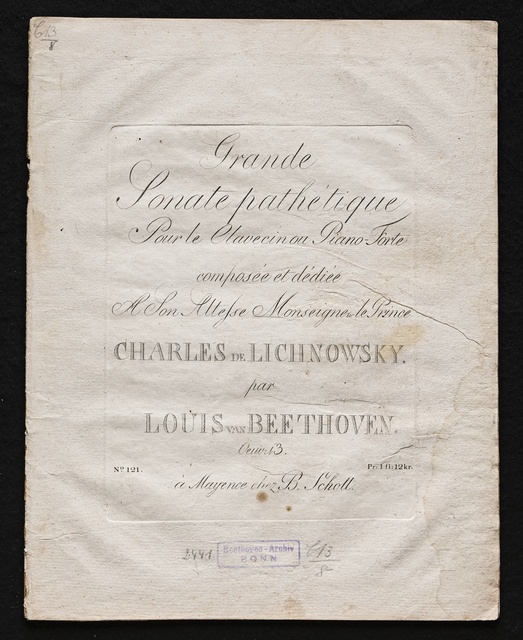 C13
8
Grande
Sonate pathétique
Pour le Clavecin ou Piano-Forte
composée et dédiée
A Son Altesse Monseigneur le Prince
CHARLES DE LICHNOWSKY.
par
LOUIS VAN BEETHOVEN.
Oeuv. 13.
No. 121.
Pr. 1 fl: 12 kr.
à Mayence chez B. Schott.
Beethoven-Archiv
BONN
C13